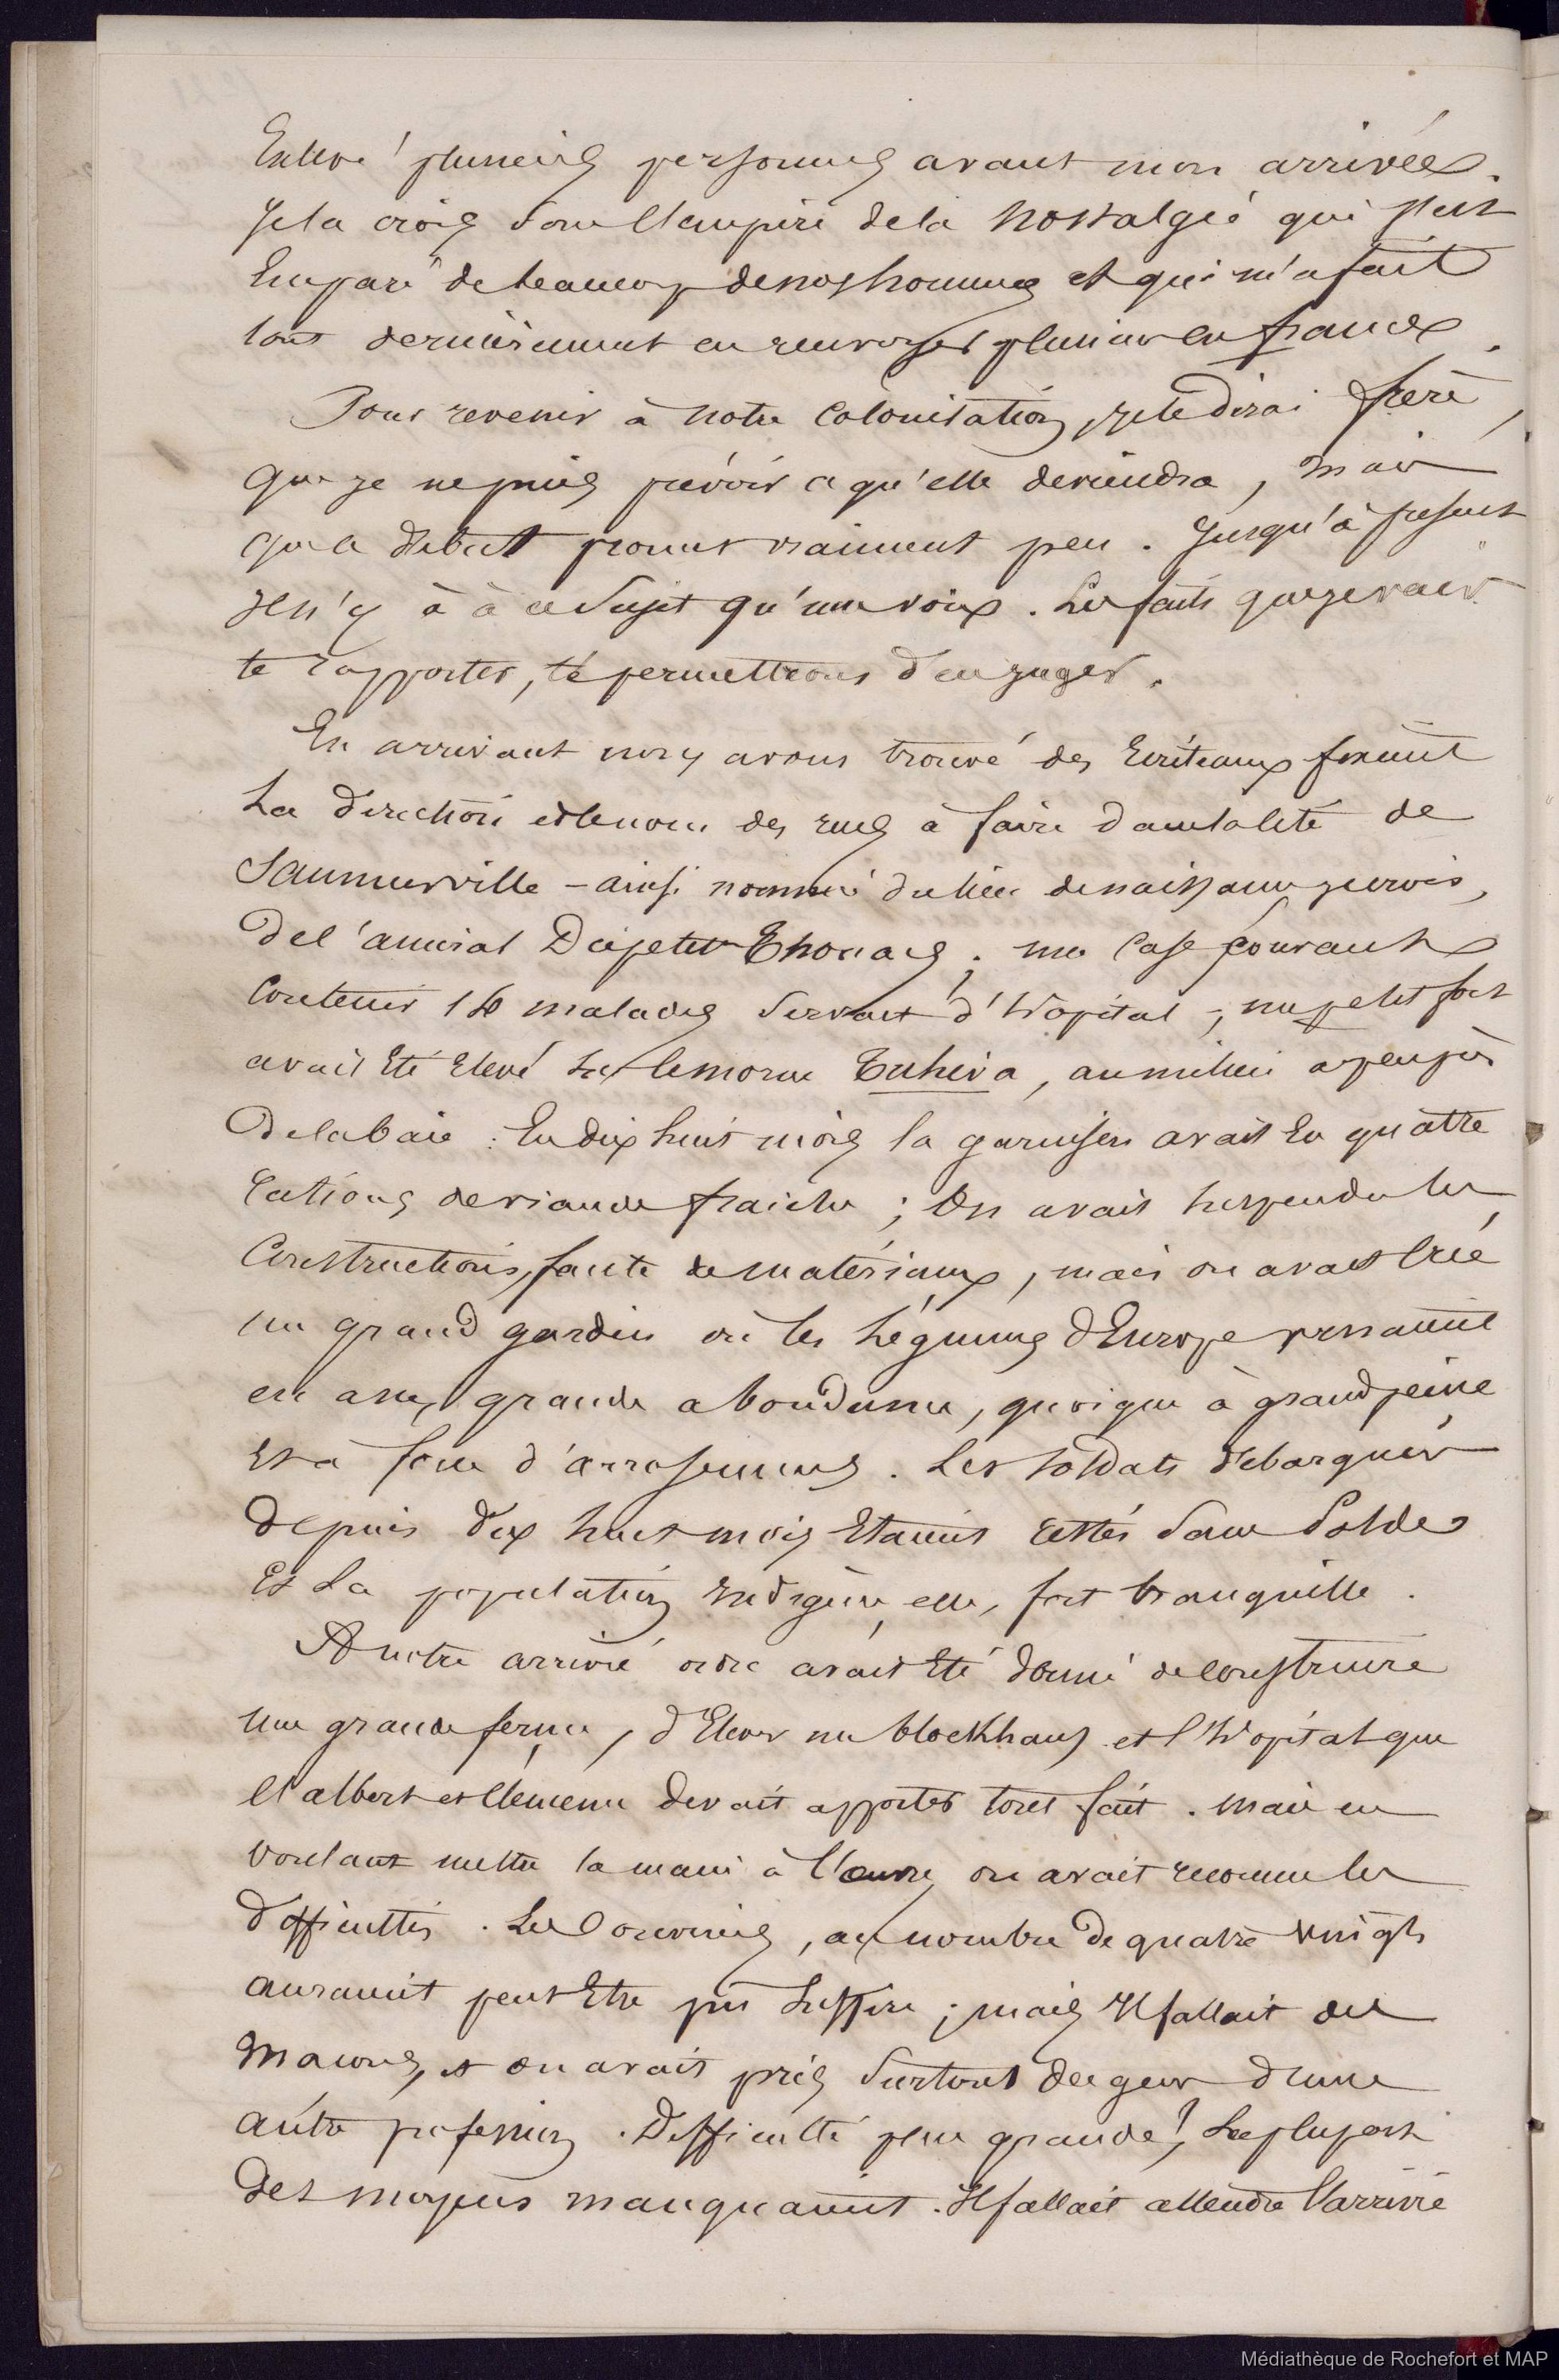 Enlevé plusieurs personnes avant mon arrivée.
Je la crois sous l'empire de la Nostalgie qui s'est
Emparé de beaucoup de nos hommes et qui m'a fait
tout dernièrement en renvoyer plusieurs en france.
Pour revenir à notre Colonisation, je te dirai frère,
que je ne puis prévoir ce qu'elle deviendra, mais
que ce début promet vraiment peu. Jusqu'à présent
il n'y à à ce sujet qu'une voix. Les faits que je vais
te rapporter, te permettrons d'en juger.
En arrivant nous avons trouvé des Ecriteaux
La direction et le nom des rues à faire dans la cité de
Saumurville - ainsi nommé du lieu de naissance je crois,
de l'amiral Dupetit Thouars; une Case pouvant
Contenir 10 malades servait d'hopital; un petit fort
avait été élevé sur le morne Tuhiva, au milieu apeuprès
de la baie. En dix huit mois la garnison avait eu quatre
rations de viande fraiche; On avait suspendu les
Constructions, faute de matériaux, mais on avait créé
un grand jardin où les Légumes d'Europe venaient
en assez grande abondance, quoique à grand peine
et à force d'arrosements. Les soldats débarqués
depuis dix huit mois étaient restés sans Solde
Et la population indigène, elle, fort tranquille.
A notre arrivé ordre avait été donné de construire
une grande ferme, d'élever un blockhaus et l'hopital que
devait apporter tout fait. Mais en
voulant mettre la main à l'œuvre on avait reconnu les
difficultés. Les ouvriers, au nombre de quatre vingts
auraient peut être pu suffire; mais il fallait des
maçons, et on avait pris surtout des gens d'une
autre profession. Difficulté plus grande!, La plupart
des moyens manquaient. Il fallait attendre l'arrivé
Médiathèque de Rochefort et MAP